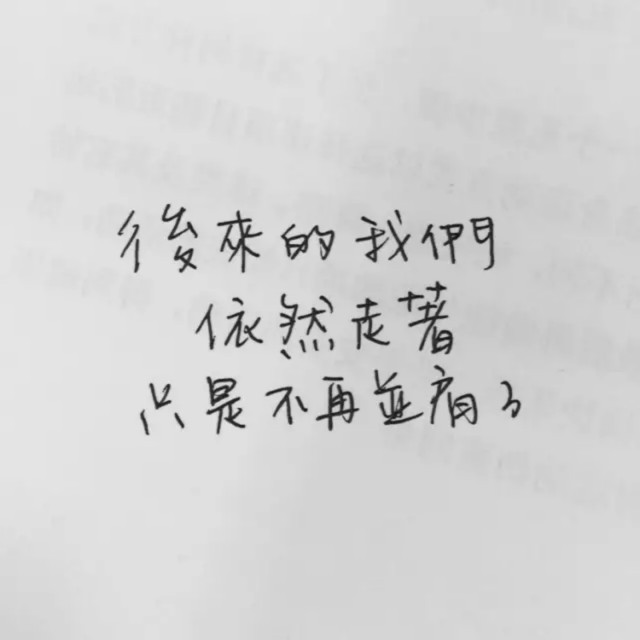 後來的我們
依然走著
只是不再並肩了